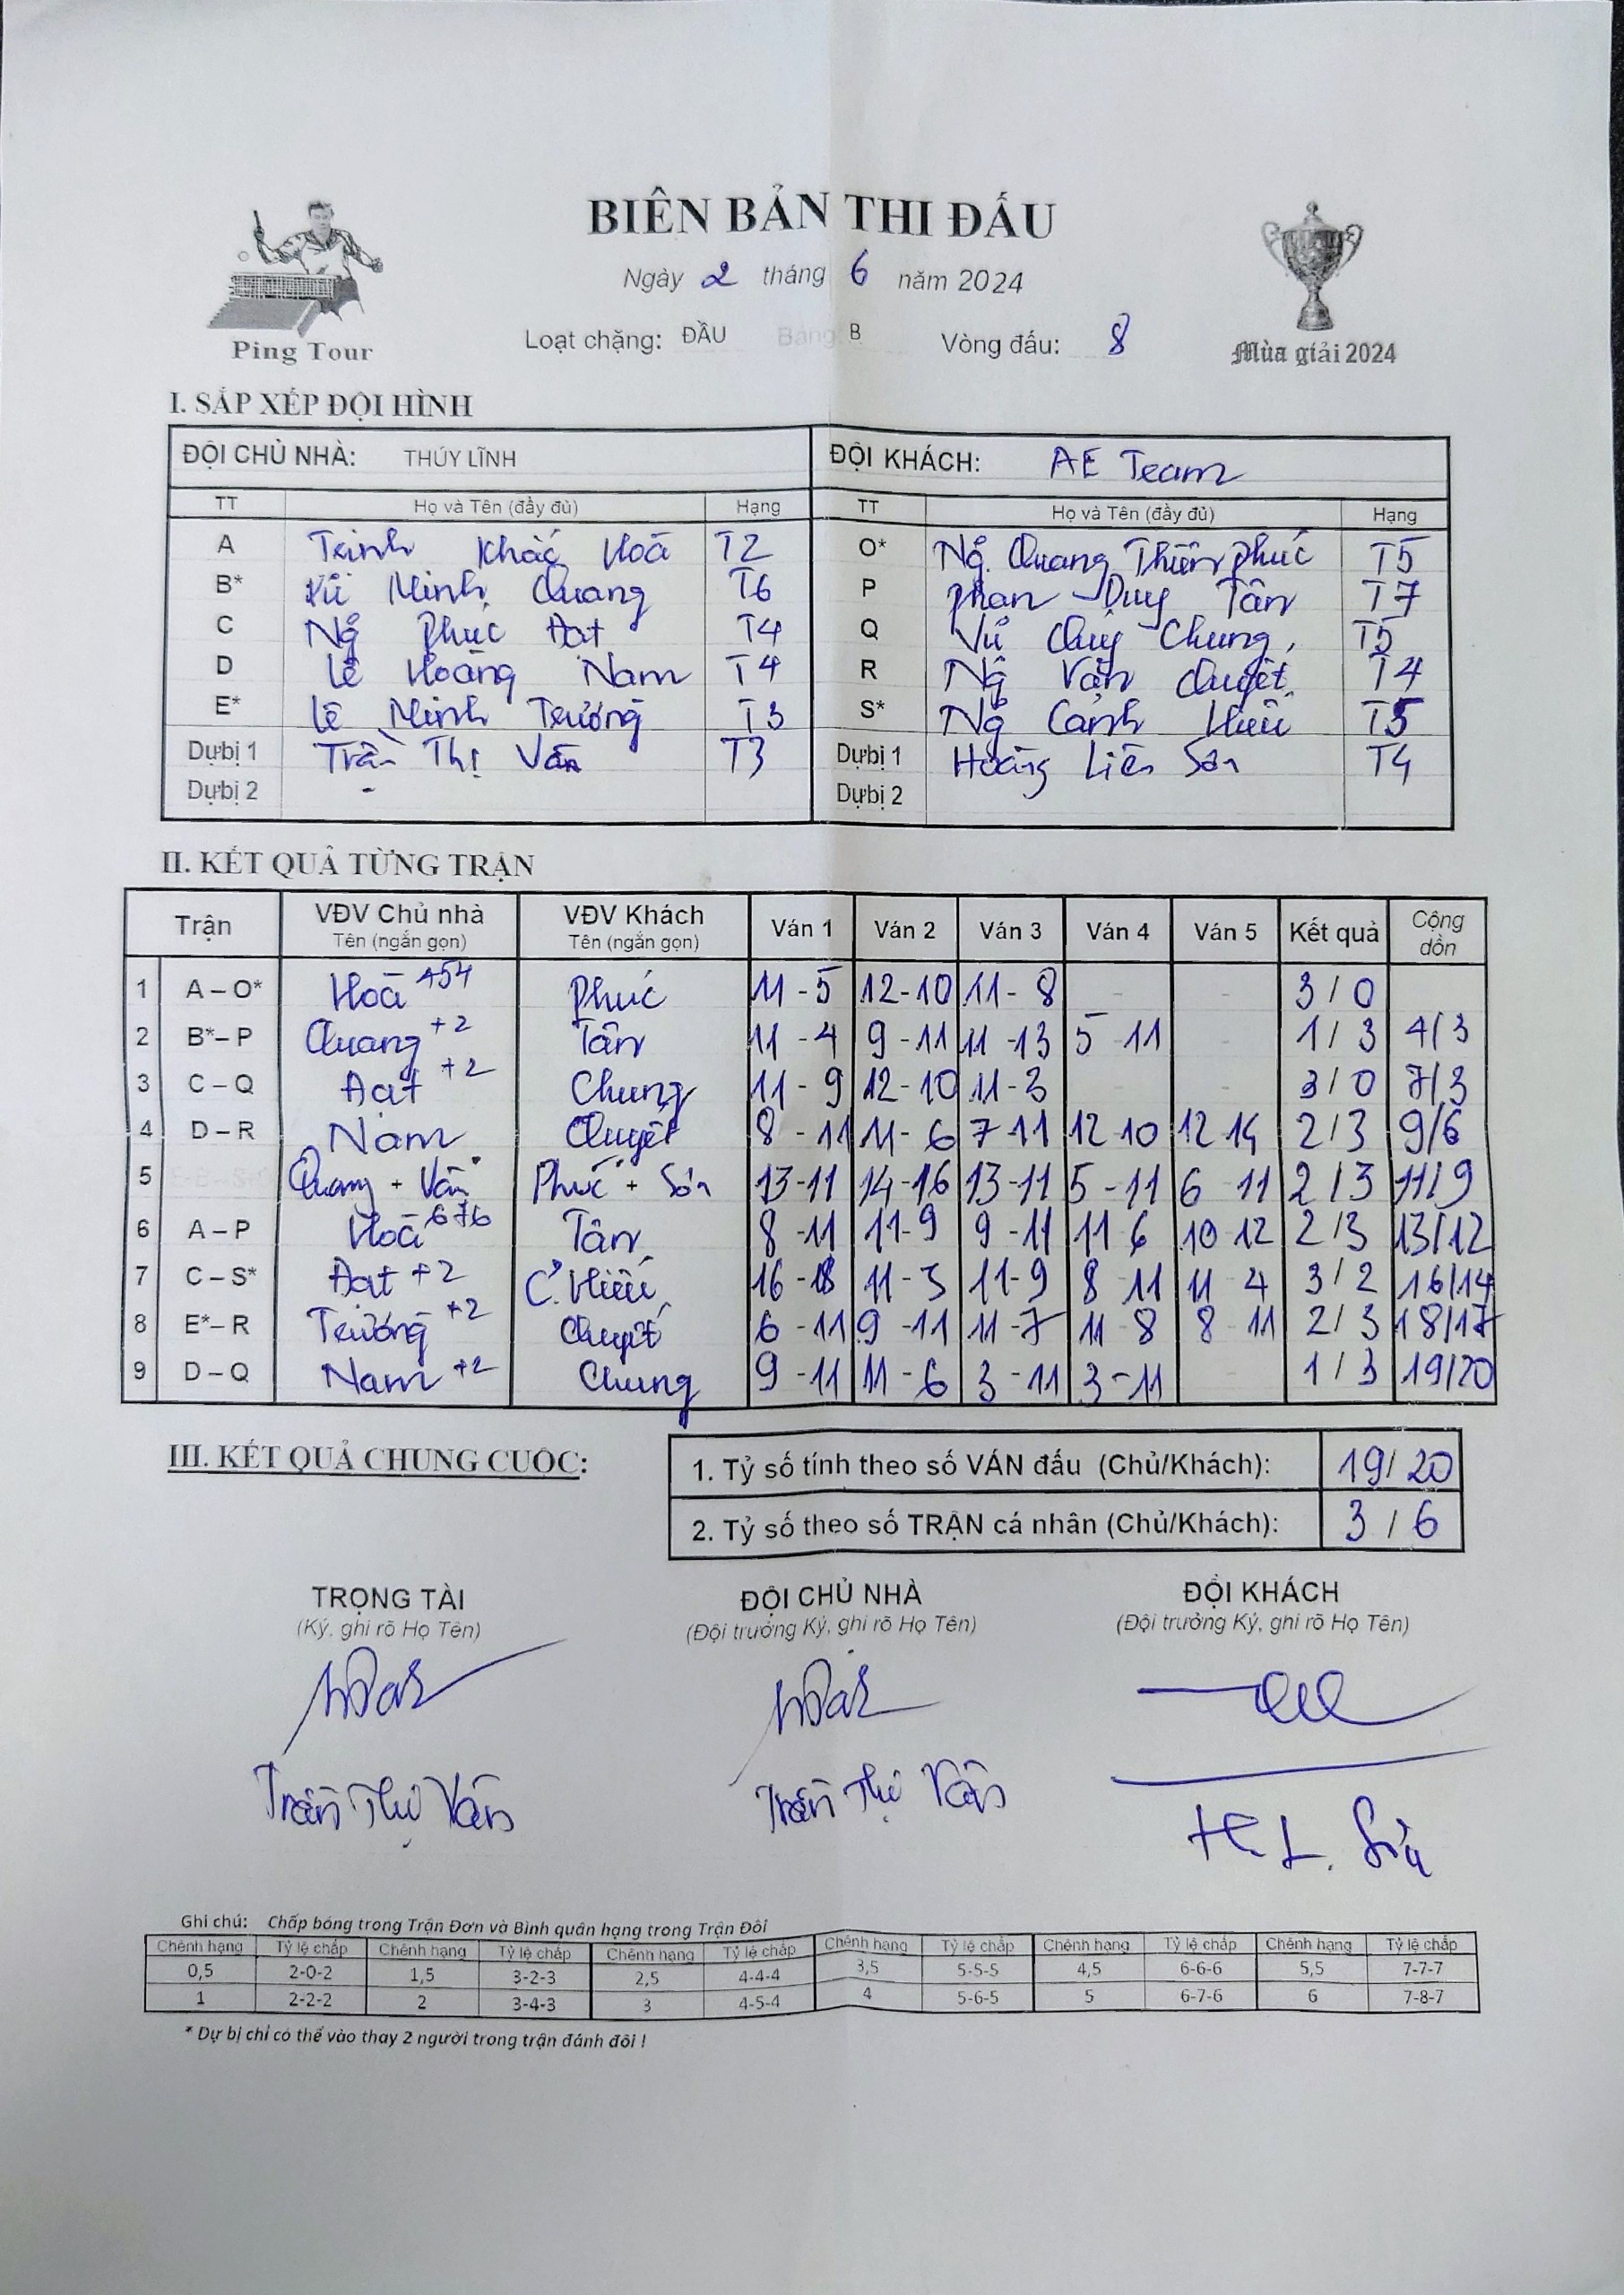 BIÊN BẢN THI ĐẤU
Ngày 2 tháng 6 năm 2024
Loạt chặng: ĐẦU Bảng B Vòng đấu: 8
Ping Tour
Mùa giải 2024
I. SẮP XẾP ĐỘI HÌNH
ĐỘI CHỦ NHÀ: THÚY LĨNH ĐỘI KHÁCH: AE Team
TT Họ và Tên (đầy đủ) Hạng TT Họ và Tên (đầy đủ) Hạng
A Trịnh Khắc Hoà T2 O* Ng. Quang Thiên Phúc T5
B* Vũ Minh Quang T6 P Phan Duy Tân T7
C Ng Phúc Đạt T4 Q Vũ Quý Chung T5
D Lê Hoàng Nam T4 R Ng Văn Quyết T4
E* Lê Minh Trường T3 S* Ng Cảnh Hiếu T5
Dự bị 1 Trần Thị Vân T3 Dự bị 1 Hoàng Liên Sơn T4
Dự bị 2 Dự bị 2
II. KẾT QUẢ TỪNG TRẬN
Trận VĐV Chủ nhà Tên (ngắn gọn) VĐV Khách Tên (ngắn gọn) Ván 1 Ván 2 Ván 3 Ván 4 Ván 5 Kết quả Cộng dồn
1 A – O* Hoà 454 Phúc 11 - 5 12 - 10 11 - 8 - - 3 / 0
2 B* – P Quang +2 Tân 11 - 4 9 - 11 11 - 13 5 - 11 - 1 / 3 4/3
3 C – Q Đạt +2 Chung 11 - 9 12 - 10 11 - 3 - - 3 / 0 7/3
4 D – R Nam Quyết 8 - 11 11 - 6 7 - 11 12 - 10 12 - 14 2 / 3 9/6
5 Quang + Vân Phúc + Sơn 13 - 11 14 - 16 13 - 11 5 - 11 6 - 11 2 / 3 11/9
6 A – P Hoà 676 Tân 8 - 11 11 - 9 9 - 11 11 - 6 10 - 12 2 / 3 13/12
7 C – S* Đạt +2 C. Hiếu 16 - 18 11 - 5 11 - 9 8 - 11 11 - 4 3 / 2 16/14
8 E* – R Trường +2 Quyết 6 - 11 9 - 11 11 - 7 11 - 8 8 - 11 2 / 3 18/17
9 D – Q Nam +2 Chung 9 - 11 11 - 6 3 - 11 3 - 11 - 1 / 3 19/20
III. KẾT QUẢ CHUNG CUỘC:
1. Tỷ số tính theo số VÁN đấu (Chủ/Khách): 19 / 20
2. Tỷ số theo số TRẬN cá nhân (Chủ/Khách): 3 / 6
TRỌNG TÀI ĐỘI CHỦ NHÀ ĐỘI KHÁCH
(Ký, ghi rõ Họ Tên) (Đội trưởng Ký, ghi rõ Họ Tên) (Đội trưởng Ký, ghi rõ Họ Tên)
Trần Thị Vân Trần Thị Vân H. L. Sơn
Ghi chú: Chấp bóng trong Trận Đơn và Bình quân hạng trong Trận Đôi
Chênh hạng Tỷ lệ chấp Chênh hạng Tỷ lệ chấp Chênh hạng Tỷ lệ chấp Chênh hạng Tỷ lệ chấp Chênh hạng Tỷ lệ chấp Chênh hạng Tỷ lệ chấp
0,5 2-0-2 1,5 3-2-3 2,5 4-4-4 3,5 5-5-5 4,5 6-6-6 5,5 7-7-7
1 2-2-2 2 3-4-3 3 4-5-4 4 5-6-5 5 6-7-6 6 7-8-7
* Dự bị chỉ có thể vào thay 2 người trong trận đánh đôi !